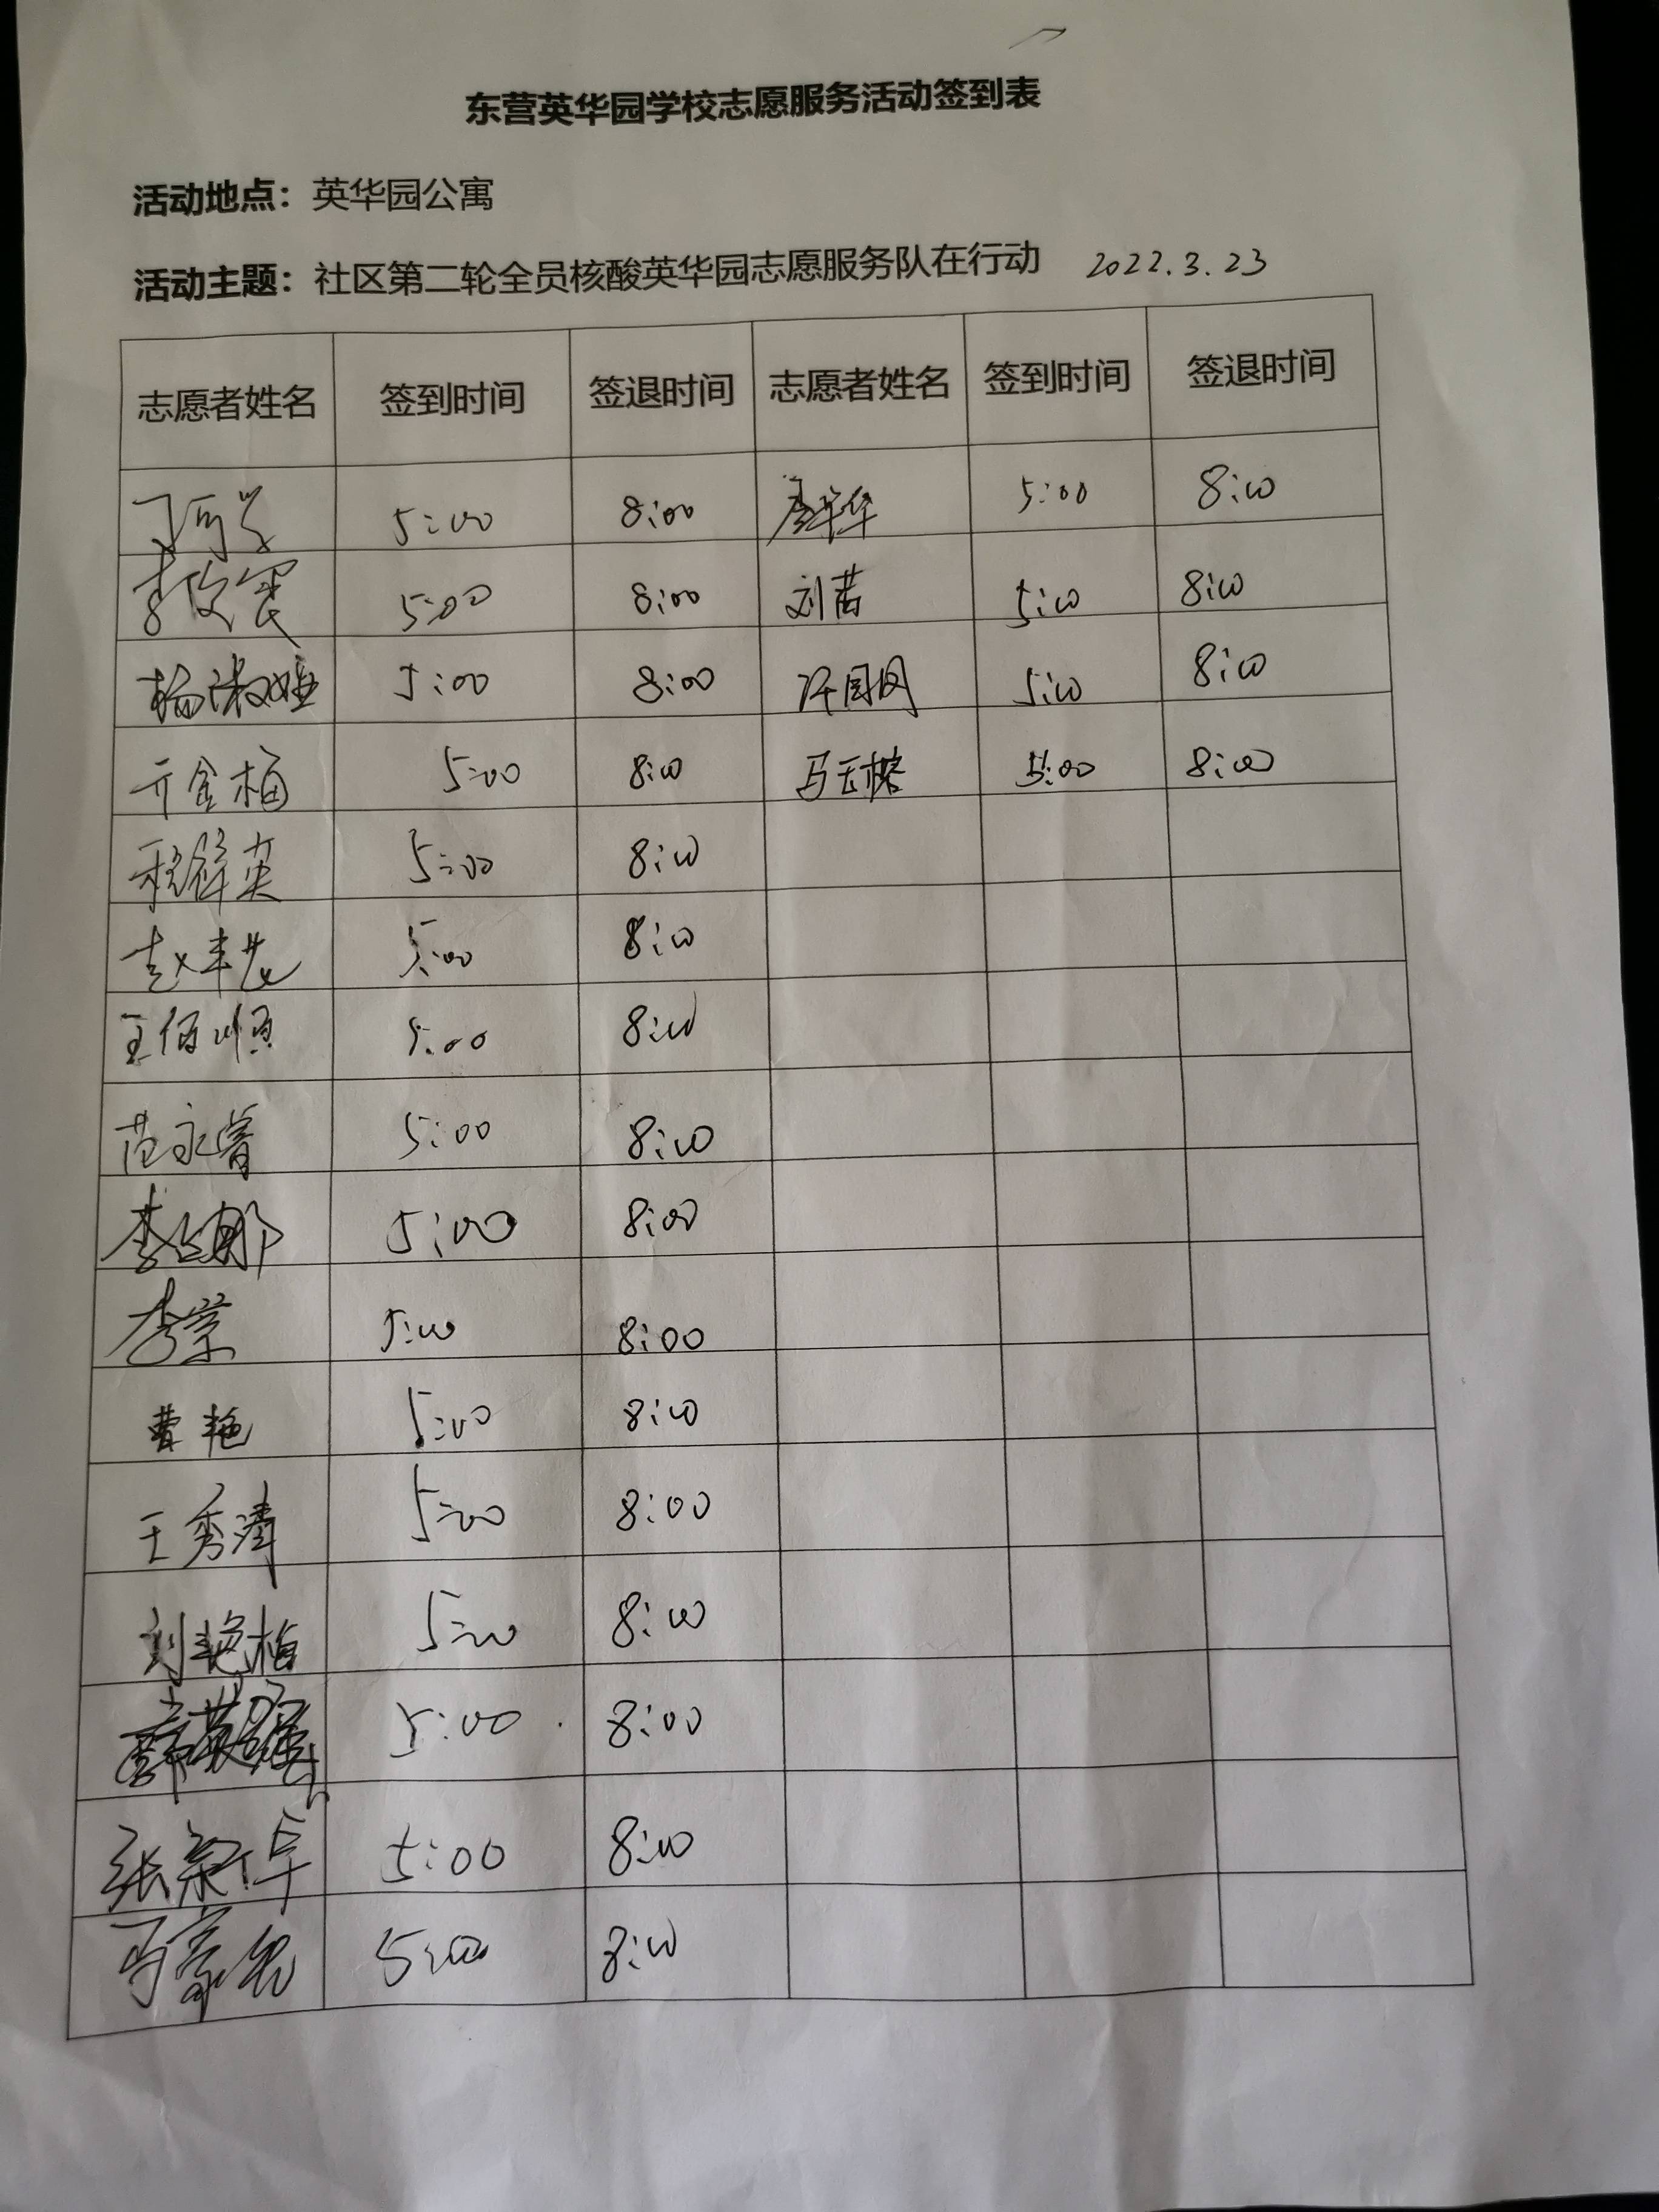 东营英华园学校志愿服务活动签到表
活动地点：英华园公寓
活动主题：社区第二轮全员核酸英华园志愿服务队在行动 2022.3.23
志愿者姓名 签到时间 签退时间 志愿者姓名 签到时间 签退时间
5:00 8:00 5:00 8:00
5:00 8:00 刘茜 5:00 8:00
杨淑娅 5:00 8:00 5:00 8:00
亓金梅 5:00 8:00 马玉榕 5:00 8:00
5:00 8:00
5:00 8:00
王佰顺 5:00 8:00
范永睿 5:00 8:00
5:00 8:00
5:00 8:00
曹艳 5:00 8:00
王秀清 5:00 8:00
刘艳梅 5:00 8:00
5:00 8:00
5:00 8:00
5:00 8:00